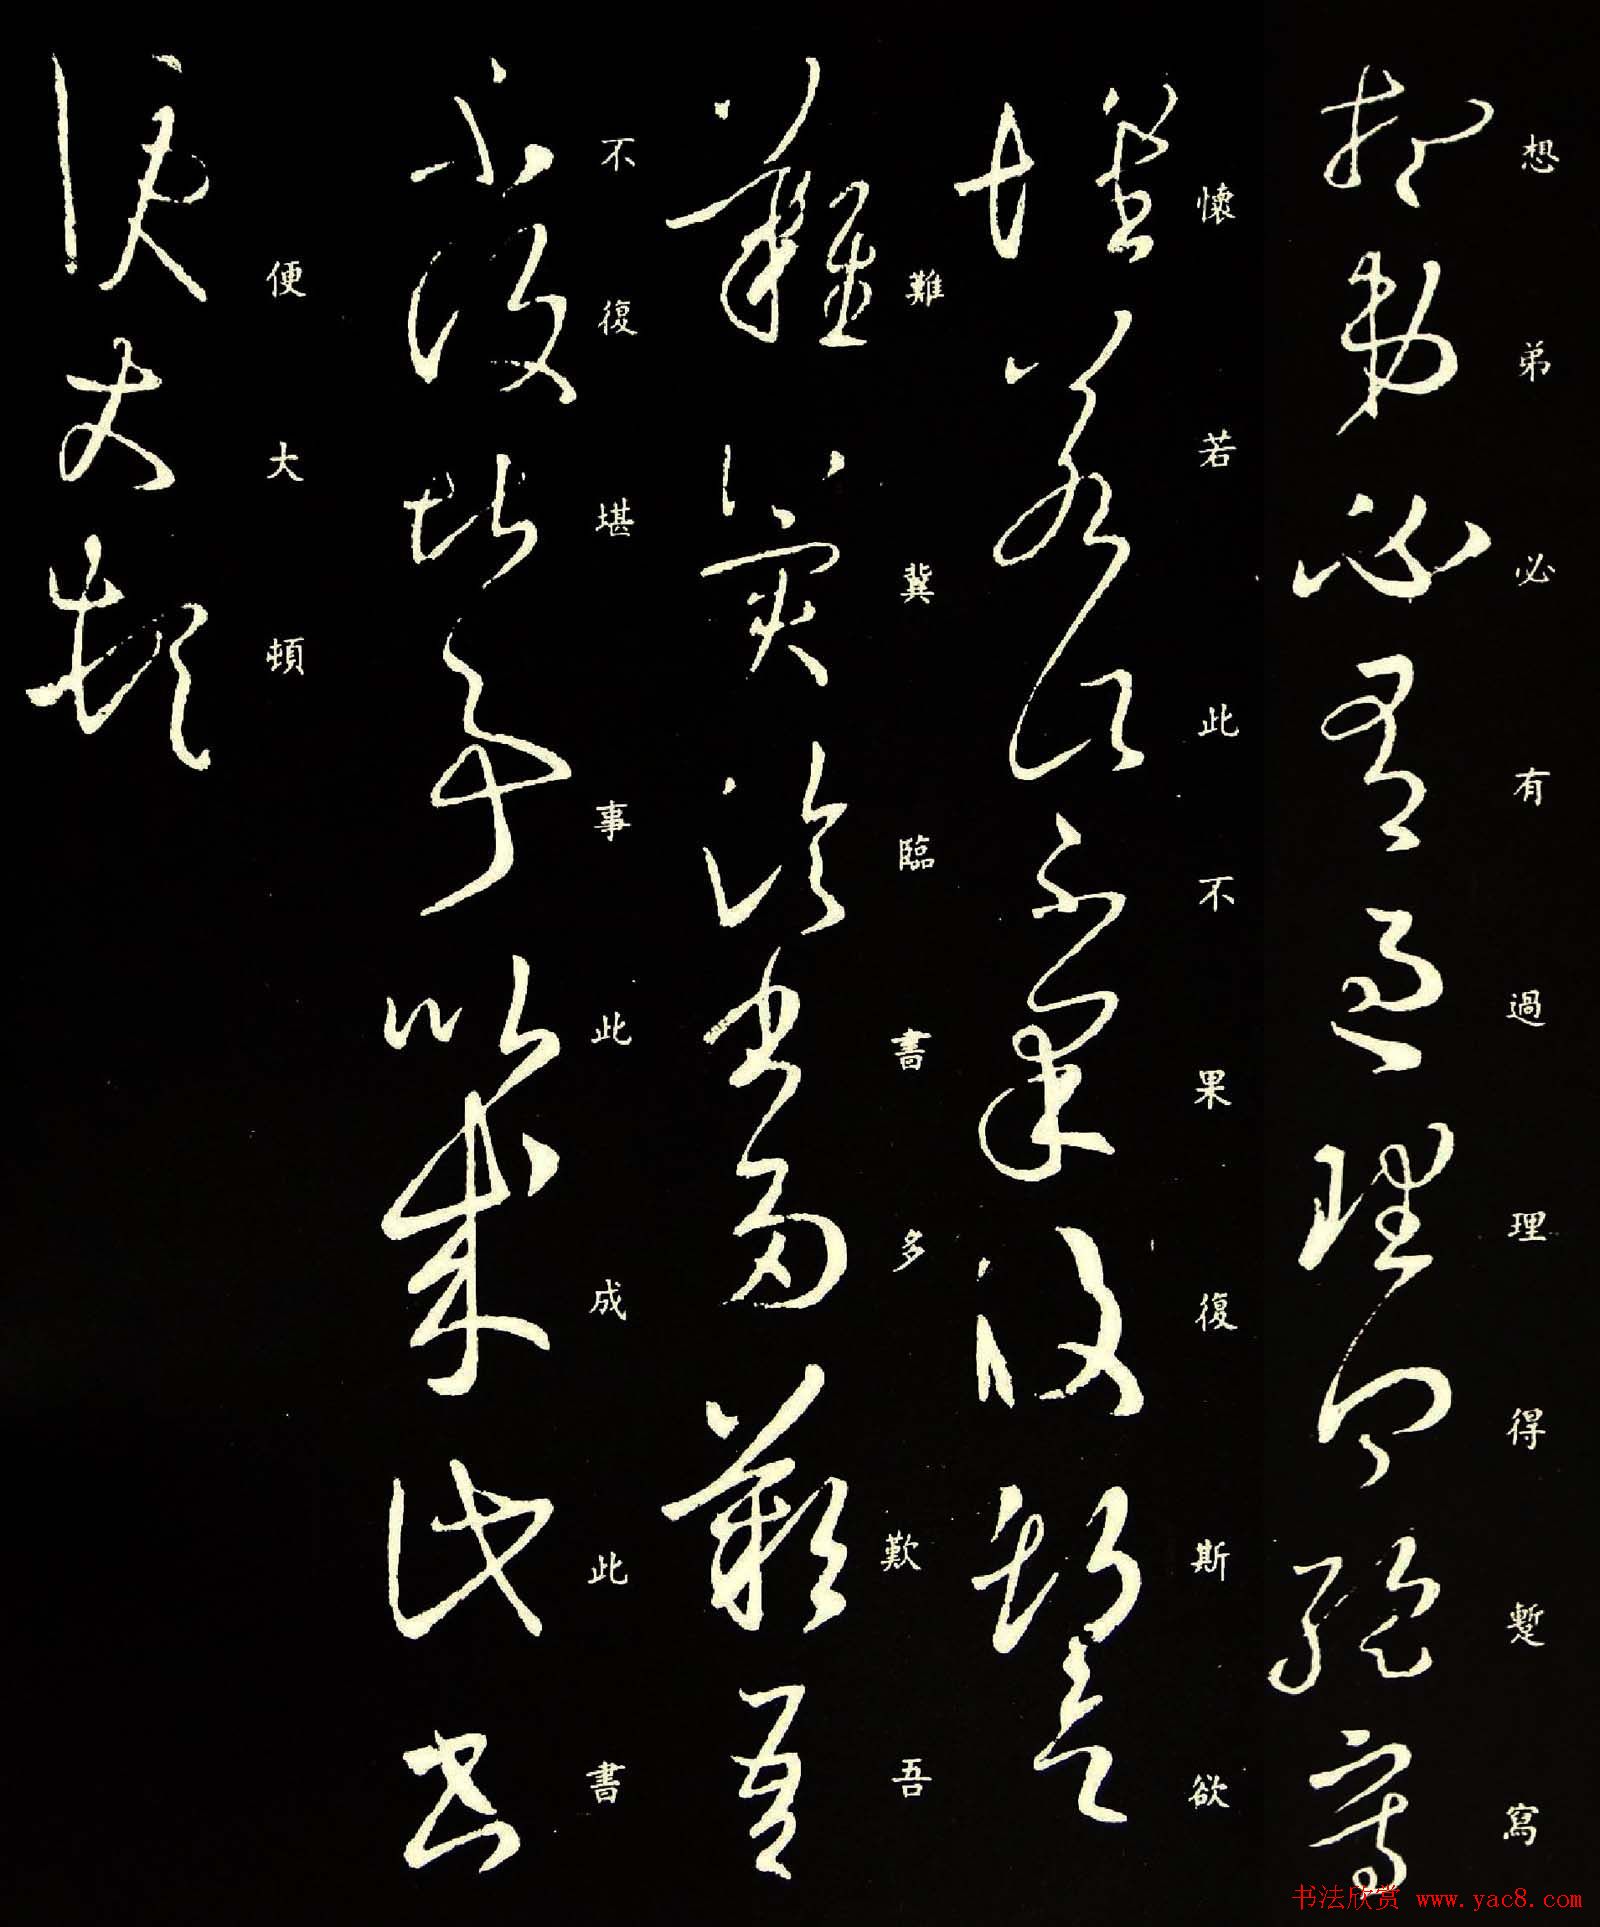 想弟必有過理得蹔寫
懷若此不果復斯欲
難冀臨書多歎吾
不復堪事此成此書
便大頓
书法欣赏 www.yac8.com